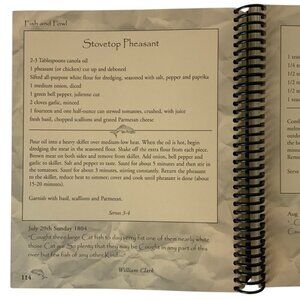 Fish and Fowl
Stovetop Pheasant
2-3 Tablespoons canola oil
1 pheasant (or chicken) cut up and deboned
Sifted all-purpose white flour for dredging, seasoned with salt, pepper and paprika
1 medium onion, diced
1 green bell pepper, julienne cut
2 cloves garlic, minced
1 fourteen and one half-ounce can stewed tomatoes, crushed, with juice
fresh basil, chopped scallions and grated Parmesan cheese
Pour oil into a heavy skillet over medium-low heat. When the oil is hot, begin
dredging the meat in the seasoned flour. Shake off the extra flour from each piece.
Brown meat on both sides and remove from skillet. Add onion, bell pepper and
garlic to skillet. Salt and pepper to taste. Sauté for about 5 minutes and then stir in
the tomatoes. Sauté for about 5 minutes, stirring constantly. Return the pheasant
to the skillet, reduce heat to simmer, cover and cook until pheasant is done (about
15-20 minutes).
Garnish with basil, scallions and Parmesan.
Serves 3-4
July 29th Sunday 1804
"Cought three large Cat fish to day verry fat one of them nearly white
those Cat are So plenty that they may be Cought in any part of this
river but fiew fish of any other Kind..."
William Clark
114